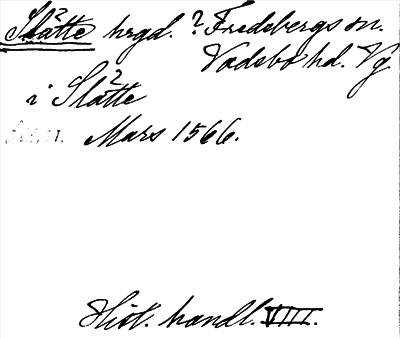 Slätte hrgd. ? Fredsbergs sn.
Vadsbo hd. Vg
i Slätte
Mars 1566.
Hist. handl. VIII.